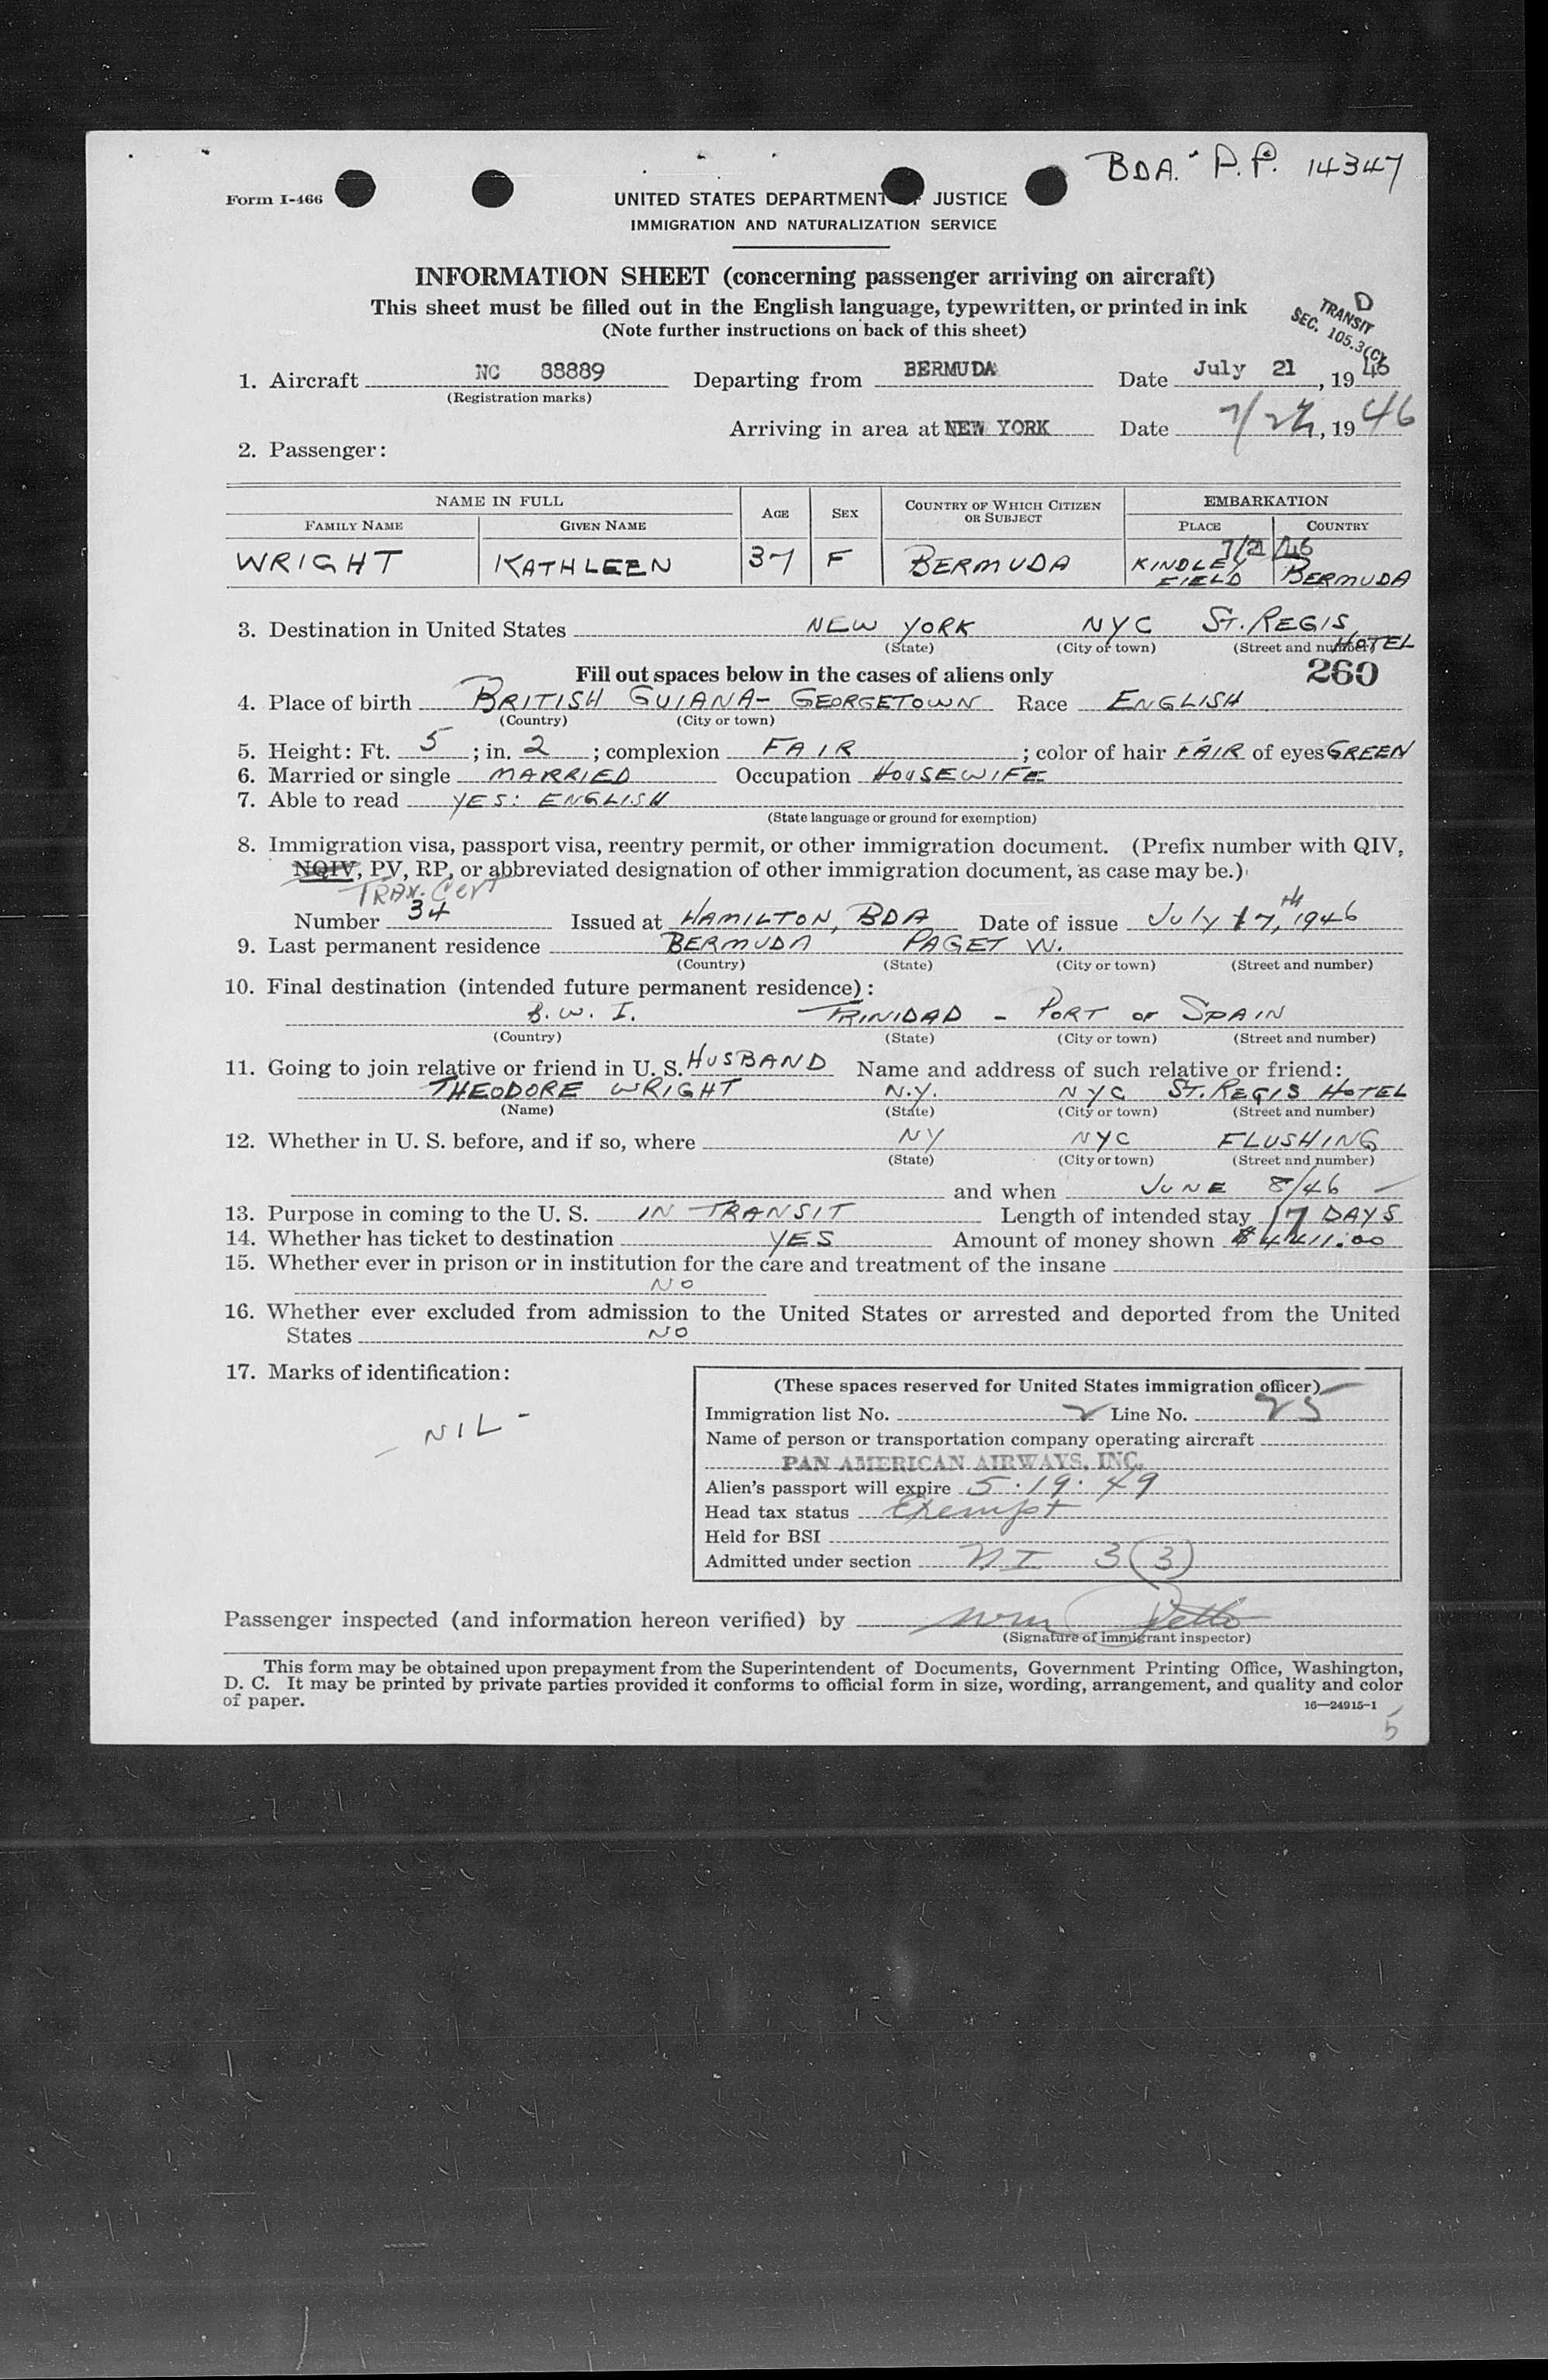 BDA. P.P. 14347
Form I-466
UNITED STATES DEPARTMENT OF JUSTICE
IMMIGRATION AND NATURALIZATION SERVICE
INFORMATION SHEET (concerning passenger arriving on aircraft)
This sheet must be filled out in the English language, typewritten, or printed in ink
(Note further instructions on back of this sheet)
D
TRANSIT
SEC. 105.3(C)
1. Aircraft NC 88889 Departing from BERMUDA Date July 21, 1946
(Registration marks)
Arriving in area at NEW YORK Date 7/2, 1946
2. Passenger:
NAME IN FULL AGE SEX COUNTRY OF WHICH CITIZEN OR SUBJECT EMBARKATION
FAMILY NAME GIVEN NAME PLACE COUNTRY
7/21/46
WRIGHT KATHLEEN 37 F BERMUDA KINDLEY FIELD BERMUDA
3. Destination in United States NEW YORK NYC ST. REGIS HOTEL
(State) (City or town) (Street and number)
Fill out spaces below in the cases of aliens only 260
4. Place of birth BRITISH GUIANA- GEORGETOWN Race ENGLISH
(Country) (City or town)
5. Height: Ft. 5; in. 2; complexion FAIR; color of hair FAIR of eyes GREEN
6. Married or single MARRIED Occupation HOUSEWIFE
7. Able to read YES: ENGLISH
(State language or ground for exemption)
8. Immigration visa, passport visa, reentry permit, or other immigration document. (Prefix number with QIV,
NQIV, PV, RP, or abbreviated designation of other immigration document, as case may be.)
Cert
Number 34 Issued at HAMILTON, BDA Date of issue July 17th, 1946
9. Last permanent residence BERMUDA PAGET W.
(Country) (State) (City or town) (Street and number)
10. Final destination (intended future permanent residence):
B. W. I. TRINIDAD - PORT OF SPAIN
(Country) (State) (City or town) (Street and number)
11. Going to join relative or friend in U. S. HUSBAND Name and address of such relative or friend:
THEODORE WRIGHT N.Y. NYC ST. REGIS HOTEL
(Name) (State) (City or town) (Street and number)
12. Whether in U. S. before, and if so, where NY NYC FLUSHING
(State) (City or town) (Street and number)
and when JUNE 8/46
13. Purpose in coming to the U. S. IN TRANSIT Length of intended stay 17 DAYS
14. Whether has ticket to destination YES Amount of money shown
15. Whether ever in prison or in institution for the care and treatment of the insane
NO
16. Whether ever excluded from admission to the United States or arrested and deported from the United
States NO
17. Marks of identification:
- NIL -
(These spaces reserved for United States immigration officer)
Immigration list No. 2 Line No. 25
Name of person or transportation company operating aircraft
PAN AMERICAN AIRWAYS, INC.
Alien's passport will expire 5.19.49
Head tax status Exempt
Held for BSI
Admitted under section NI 3 (3)
Passenger inspected (and information hereon verified) by
(Signature of immigrant inspector)
This form may be obtained upon prepayment from the Superintendent of Documents, Government Printing Office, Washington,
D. C. It may be printed by private parties provided it conforms to official form in size, wording, arrangement, and quality and color
of paper.
16—24915-1
5